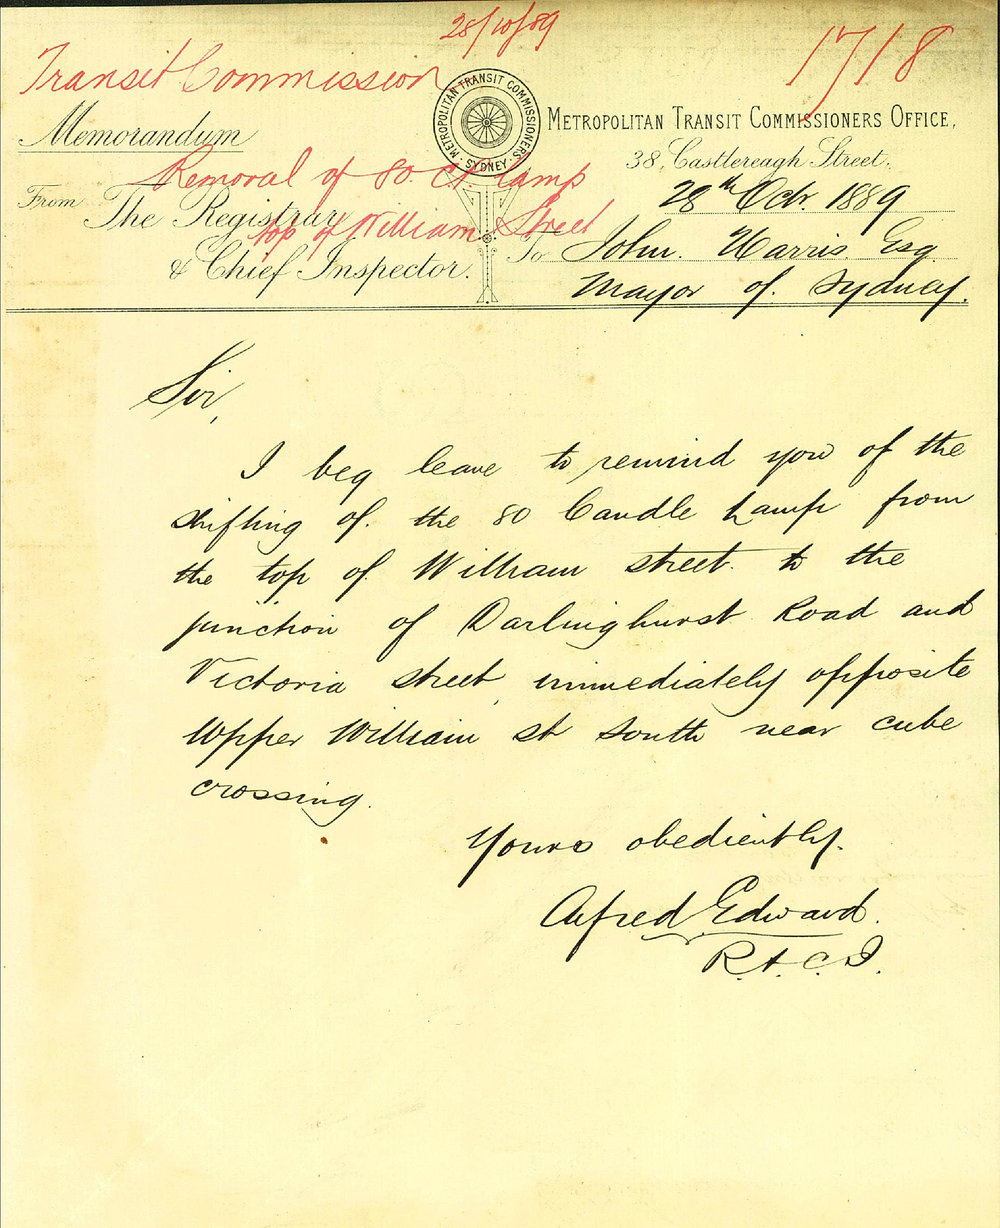 28/10/89
1718
Transit Commission
METROPOLITAN TRANSIT COMMISSIONERS · SYDNEY ·
Memorandum
METROPOLITAN TRANSIT COMMISSIONERS OFFICE,
38, Castlereagh Street.
Removal of 80. C. Lamp
top of William Street
28th Octr. 1889
From The Registrar
& Chief Inspector.
To John. Harris. Esq
Mayor of. Sydney.
Sir,
I beg leave to remind you of the
shifting of. the 80 Candle Lamp from
the top of. William street. to the
junction of Darlinghurst Road and
Victoria street, immediately opposite
Upper William st south near cube
crossing.
Yours obediently.
Alfred Edward.
R. & C. I.